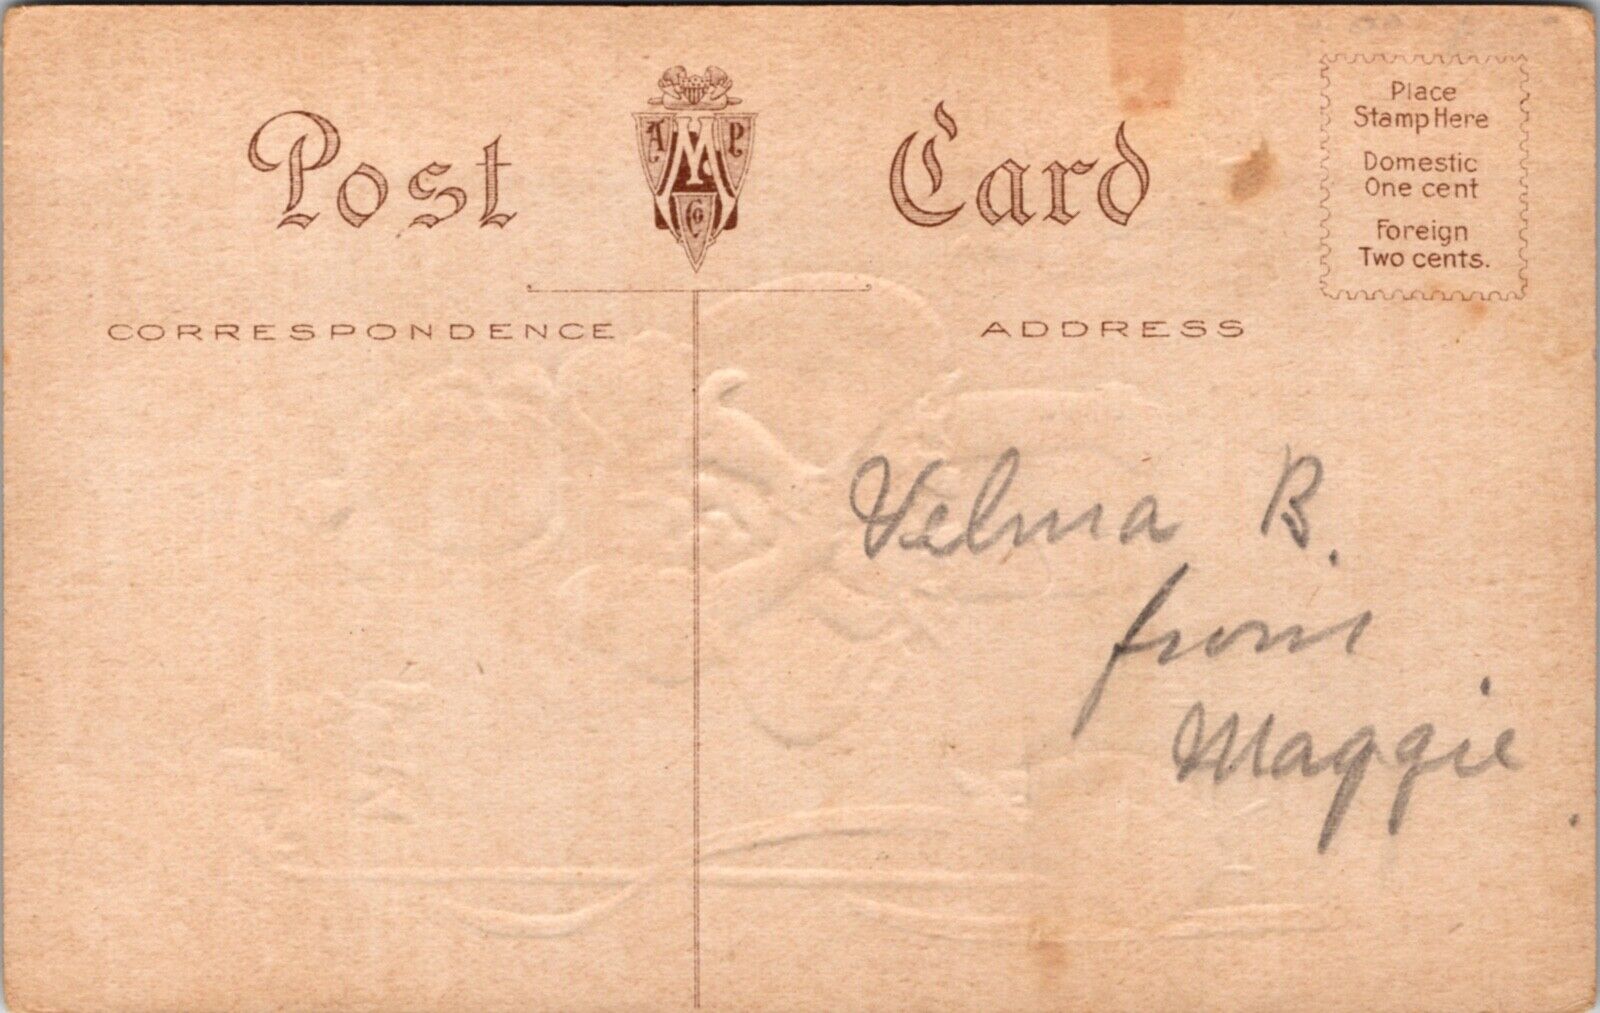 Post Card
A M P
Co
Place
Stamp Here
Domestic
One cent
Foreign
Two cents.
CORRESPONDENCE
ADDRESS
Velma B.
from
Maggie.